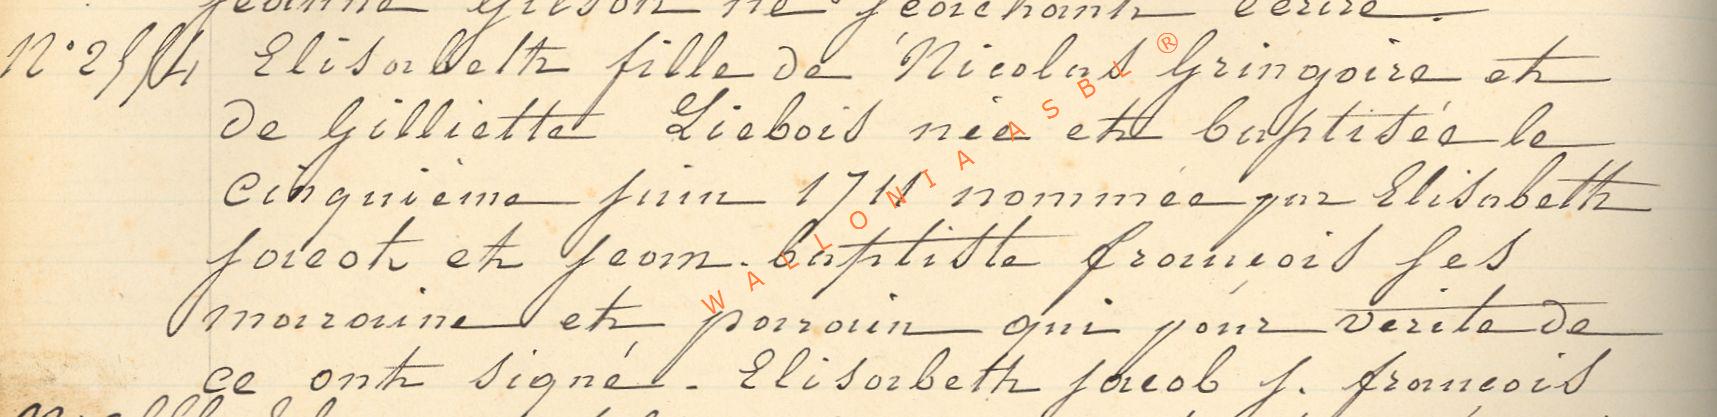 jeanne gilson ne scachant écrire.
N° 2554 Elisabeth fille de Nicolas Gringoire et
de Gilliette Liebois née et baptisée le
cinquième juin 1711 nommée par Elisabeth
jacot et jean-baptiste françois ses
maraine et parain qui pour vérité de
ce ont signé. Elisabeth jacob j. françois
WALLONIA ASBL ®